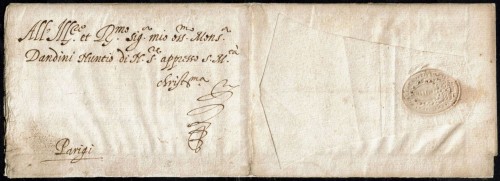 All Ill.re et R.mo sig.r mio oss.mo Mons.r
Dandini Nuntio di N.S.re appresso S. M.tà
christ.ma
Parigi